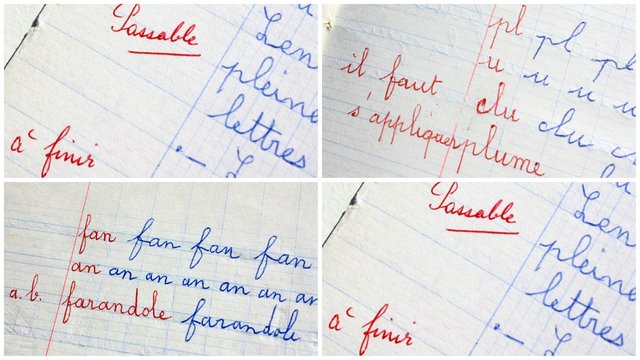 Passable
Len
pleine
lettres
à finir
pl pl pl
u u u u
il faut
clu clu
s'appliquer
plume
fan fan fan fan
an an an an an an an
a.b. farandole farandole
Passable
Len
pleine
lettres
à finir